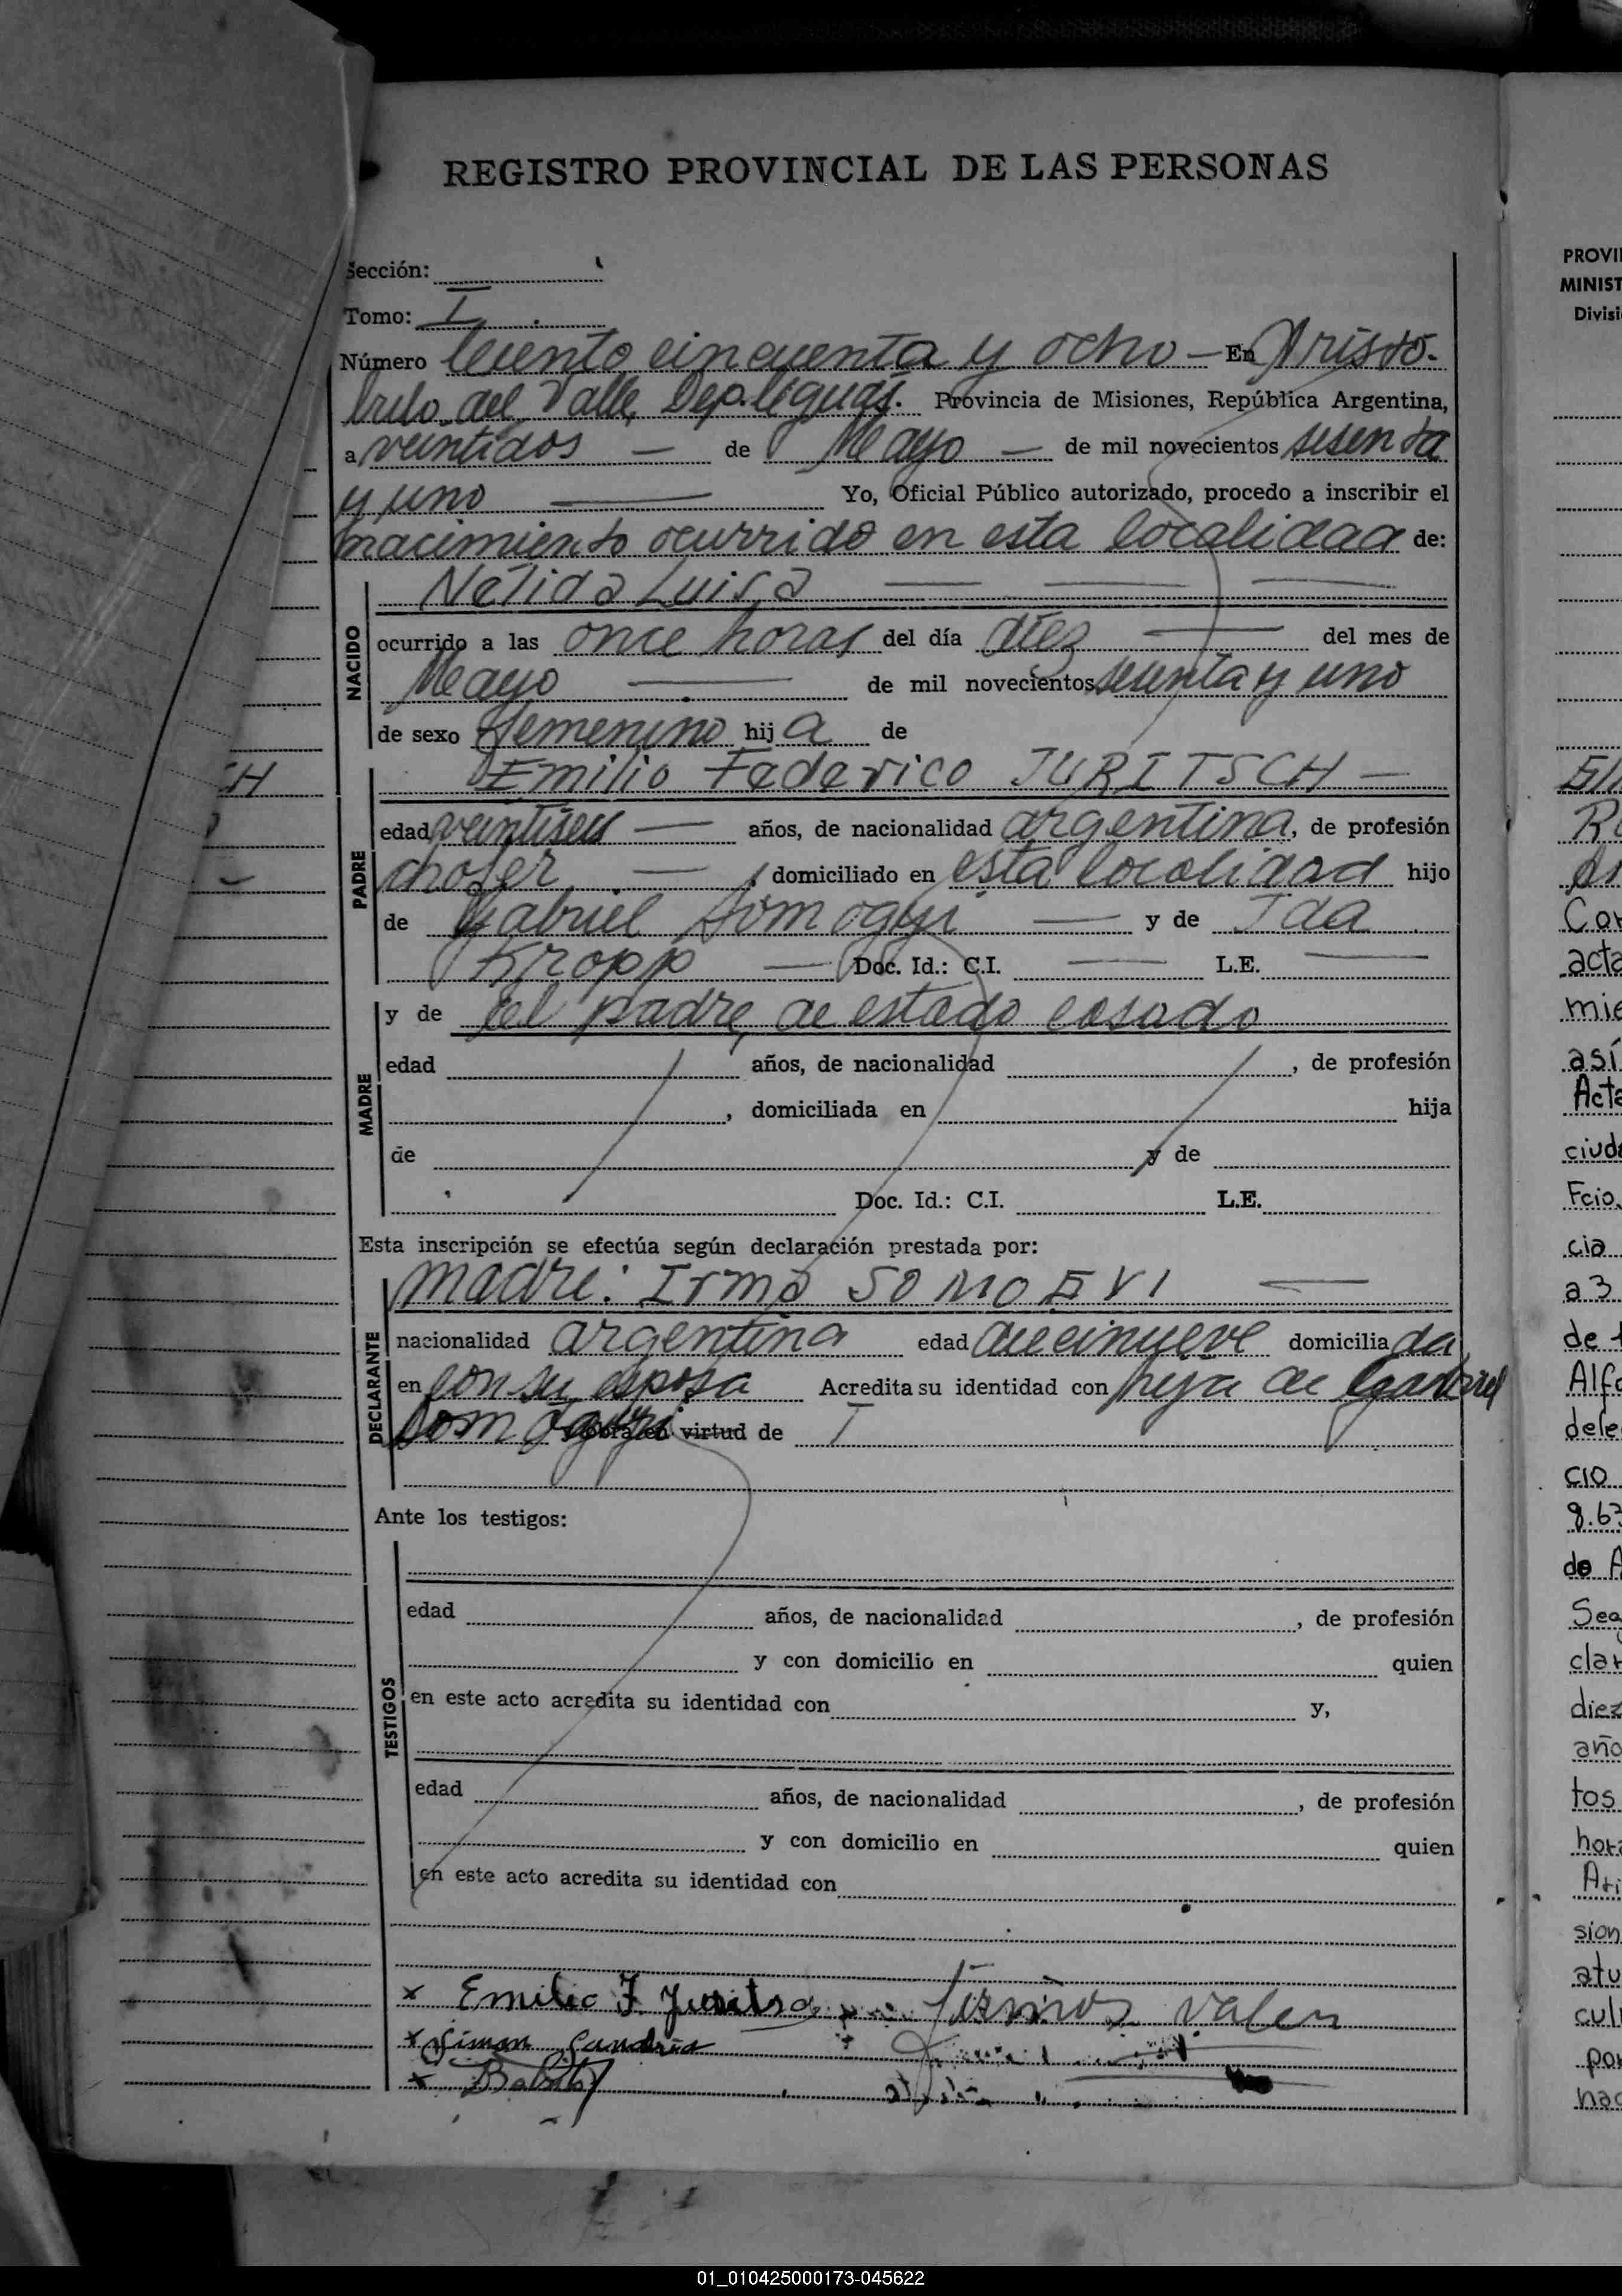 REGISTRO PROVINCIAL DE LAS PERSONAS
PROVI
MINIST
Divisi
Sección:
Tomo: I
Número Ciento cincuenta y ocho — En Aristó-
bulo del Valle, Dep. Cguás. Provincia de Misiones, República Argentina,
a veintidos — de Mayo — de mil novecientos sesenta
y uno — Yo, Oficial Público autorizado, procedo a inscribir el
nacimiento ocurrido en esta localidad de:
NACIDO
Nélida Luisa — — —
ocurrido a las once horas del día diez — del mes de
Mayo — de mil novecientos sesenta y uno
de sexo femenino hija de
CH
PADRE
Emilio Federico JURITSCH —
edad veintiseis — años, de nacionalidad argentina, de profesión
chofer — , domiciliado en esta localidad hijo
de Gabriel Somogyi — y de Ida
Kropp — Doc. Id.: C.I. — L.E. —
MADRE
y de el padre, de estado casado
edad años, de nacionalidad , de profesión
, domiciliada en hija
de y de
Doc. Id.: C.I. L.E.
Esta inscripción se efectúa según declaración prestada por:
DECLARANTE
madre: Irma SOMOGYI —
nacionalidad argentina edad diecinueve domiciliada
en con su esposa Acredita su identidad con hija de Gabriel
Somogyi virtud de
Ante los testigos:
TESTIGOS
edad años, de nacionalidad , de profesión
y con domicilio en quien
en este acto acredita su identidad con y,
edad años, de nacionalidad , de profesión
y con domicilio en quien
en este acto acredita su identidad con
x Emilio F. Juritsch
x Simon
x
Co
acta
mie
así
Acta
ciud
Fcio.
cia
a 3
de
Alf
dele
cio
de A
Seg
clar
diez
año
tos
hor
sion
atu
cul
por
nac
01_010425000173-045622